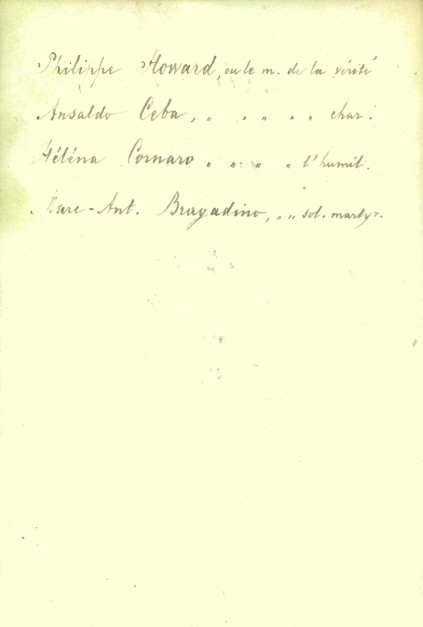 Philippe Howard, ou le m. de la vérité
Ansaldo Ceba, " " " " " char.
Héléna Cornaro " " " " l'humil.
Marc-Ant. Bragadino, " " sol. martyr.